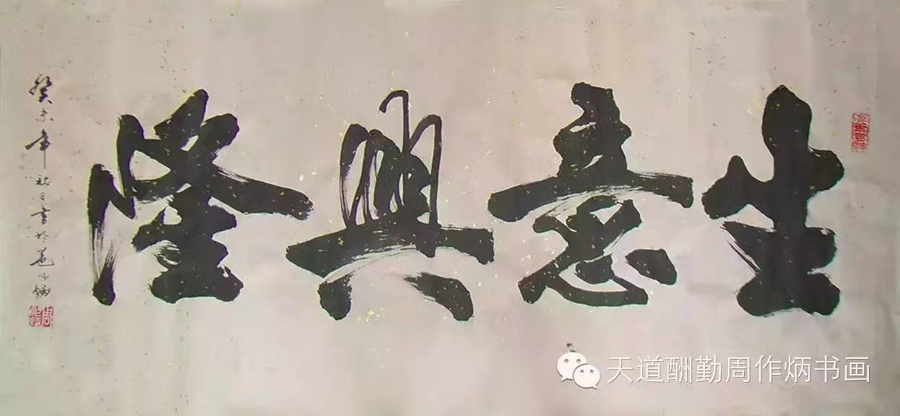 生意興隆
癸未年
天道酬勤周作炳书画